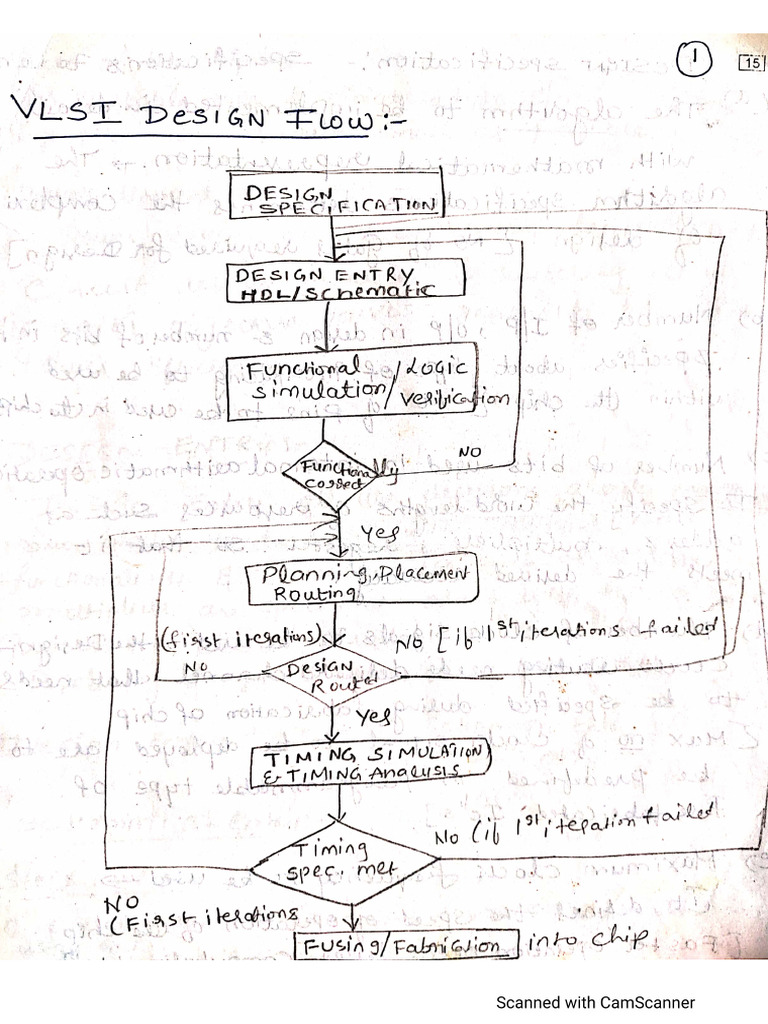 1
15
VLSI DESIGN FLOW:-
DESIGN
SPECIFICATION
DESIGN ENTRY
HDL/Schematic
Functional / Logic
Simulation / Verification
NO
Functionally
Correct
Yes
Planning, Placement
Routing
(first iterations)
No [if 1st iterations failed
No
DESIGN
Routed
Yes
TIMING SIMULATION
& TIMING Analysis
No (if 1st iteration failed
Timing
spec. met
NO
(First iterations
Fusing/Fabrication into chip
Scanned with CamScanner